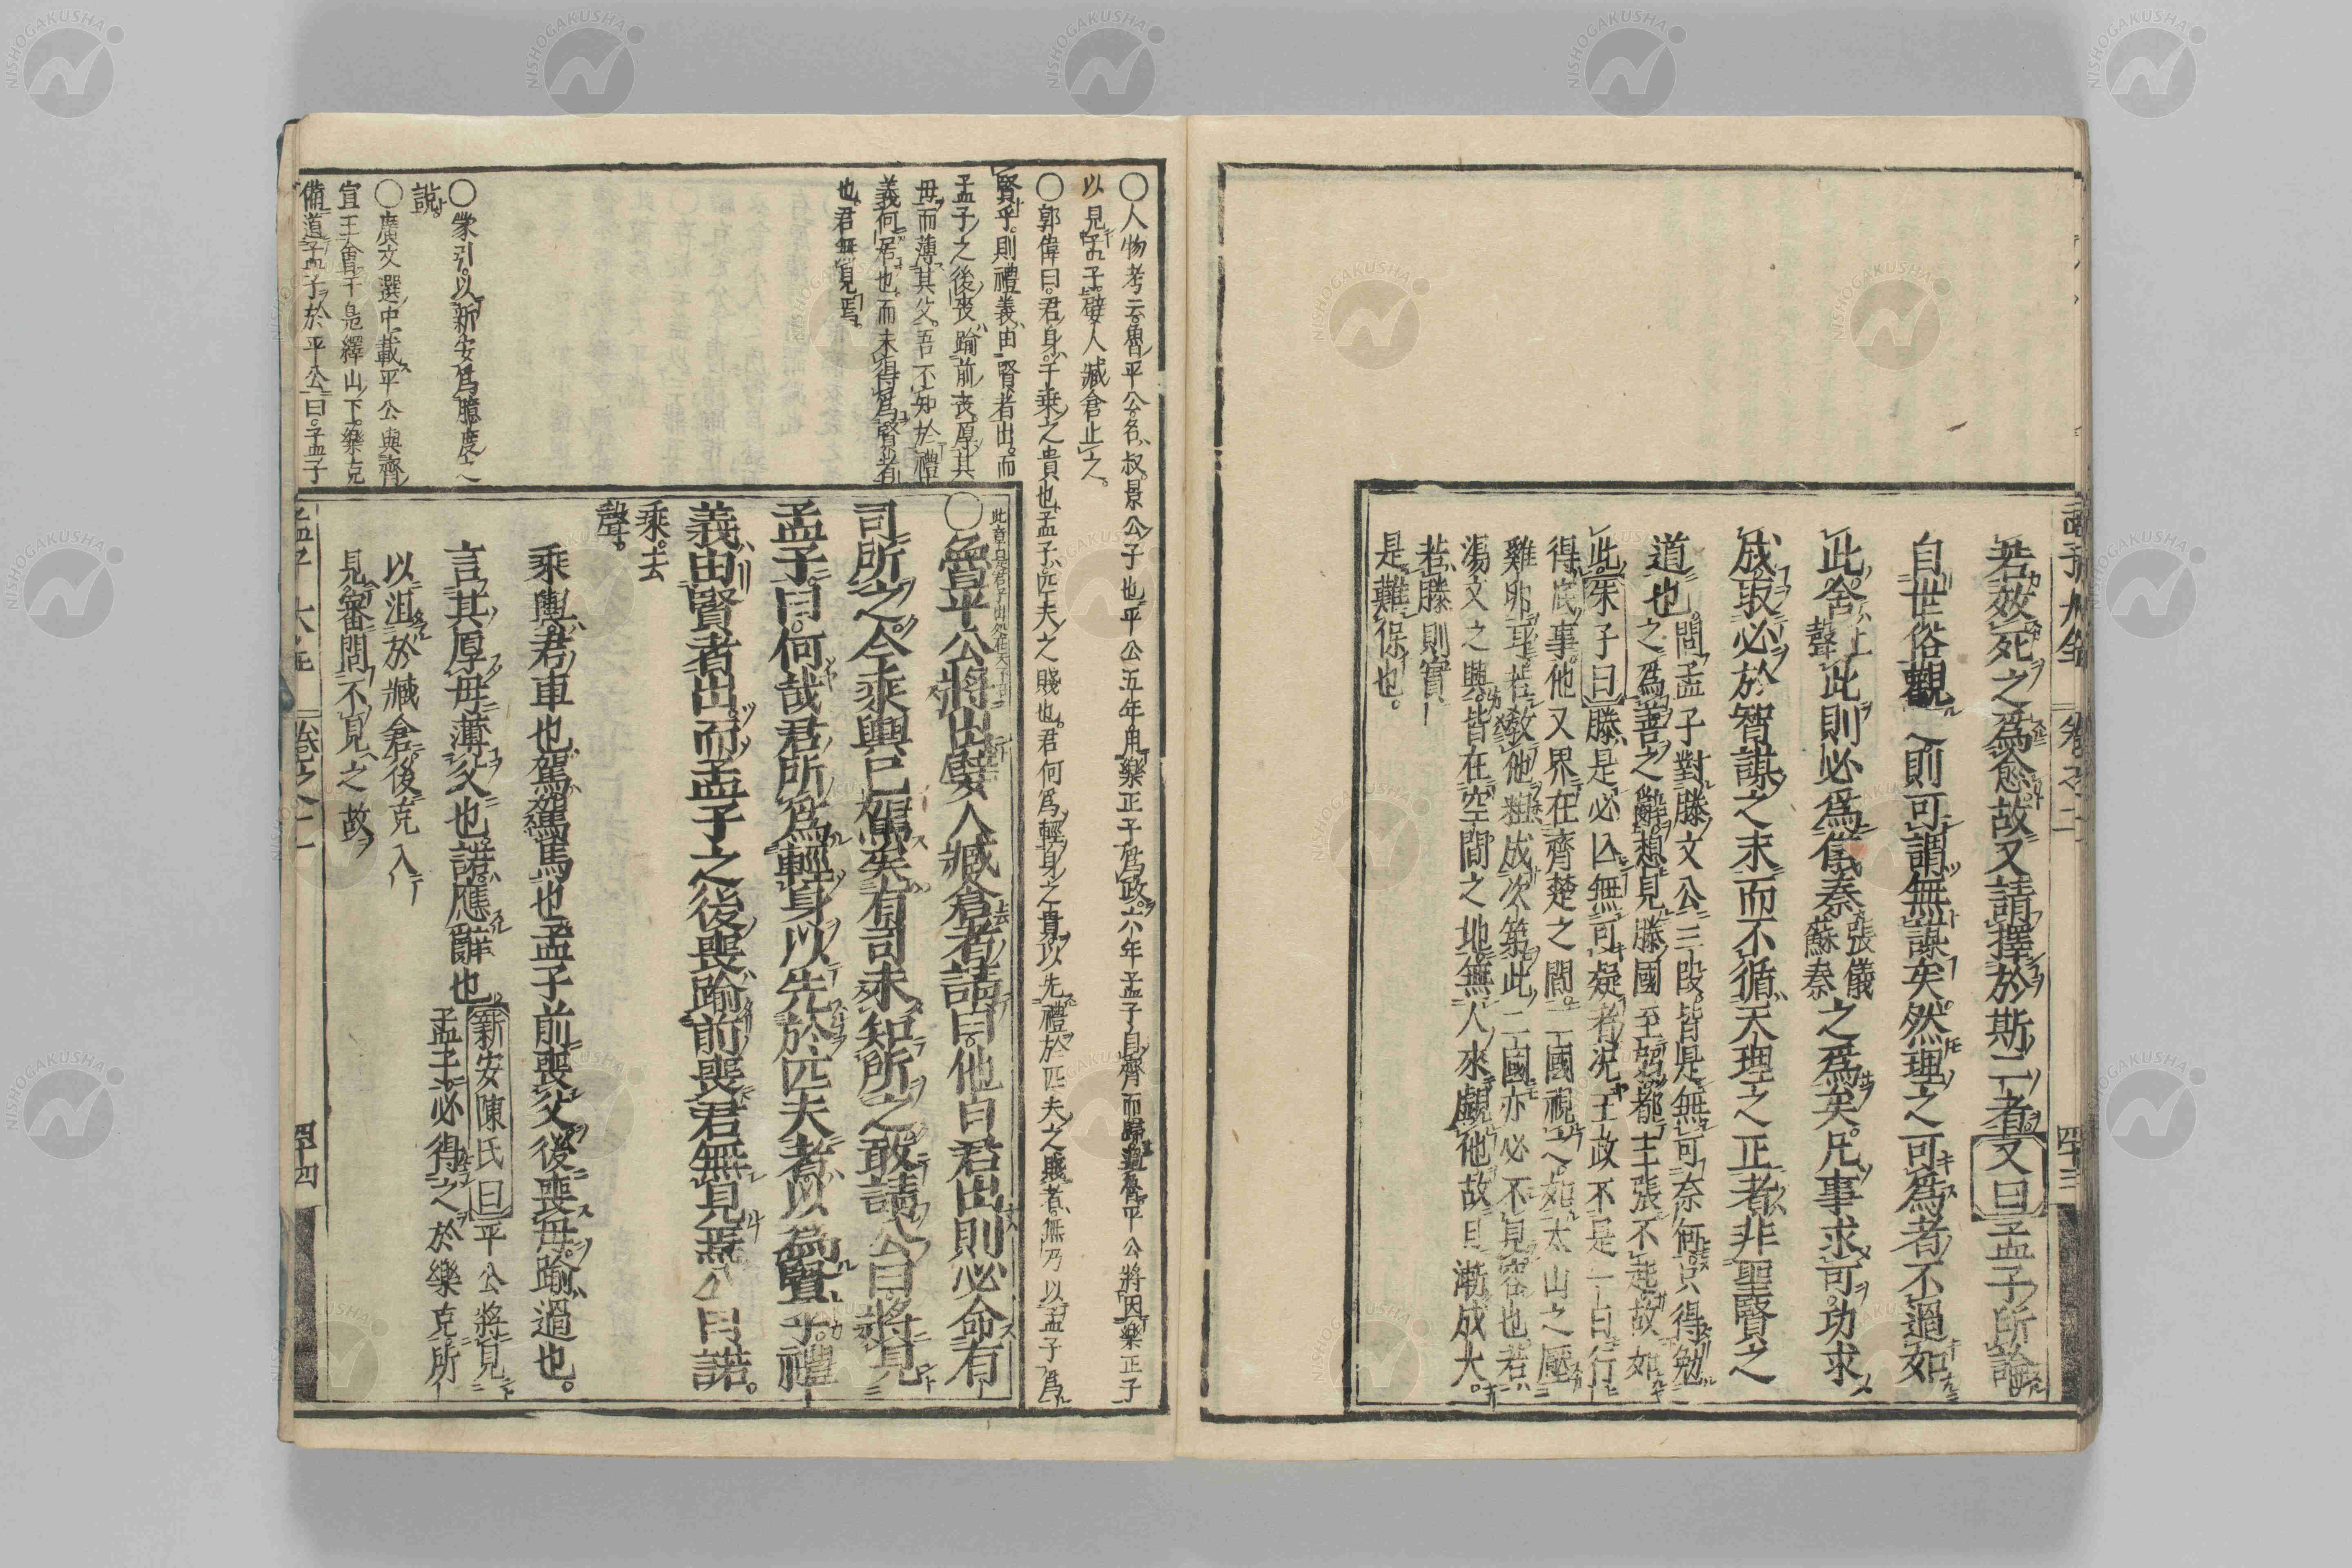 若效死之爲愈故又請擇於斯二者又曰孟子所論
自世俗觀之則可謂無謀矣然理之可爲者不過如
此舍上聲此則必爲儀秦張儀蘇秦之爲矣凡事求可功求
成取必於智謀之末而不循天理之正者非聖賢之
道也問孟子對滕文公三段皆是無可奈何只得勉
之爲善之辭想見滕國至弱都主張不起故如
此朱子曰滕是必亡無可疑者況王政不是一日行
得底事他又界在齊楚之間二國視之如太山之壓
雞卵耳若敎他粗成次第此二國亦必不見容也若
湯文之興皆在空閒之地無人來覷他故日漸成大
若滕則實
是難保也
孟子 卷之二 四十三
○人物考云魯平公名叔景公子也平公五年用樂正子爲政六年孟子自齊而歸魯平公將因樂正子
以見孟子嬖人臧倉止之
○郭偉曰君身千乘之貴也孟子匹夫之賤也君何爲輕身之貴以先禮於匹夫之賤者無乃以孟子爲
賢乎則禮義由賢者出而
孟子之後喪踰前喪厚其
母而薄其父吾不知於禮
義何居也而未得爲賢者
也君無見焉
○蒙引以新安爲臆度之
說
○廣文選中載平公與齊
宣王會于鳧繹山下樂克
備道孟子於平公曰孟子
○魯平公將出嬖人臧倉者請曰他日君出則必命有
司所之今乘輿已駕矣有司未知所之敢請公曰將見
孟子曰何哉君所爲輕身以先於匹夫者以爲賢乎禮
義由賢者出而孟子之後喪踰前喪君無見焉公曰諾
乘去
聲
乘輿君車也駕駕馬也孟子前喪父後喪母踰過也
言其厚母薄父也諾應辭也新安陳氏曰平公將見
孟子必得之於樂克所
以沮於臧倉後克入
見審問不見之故
孟子 大全 卷之二 四十四